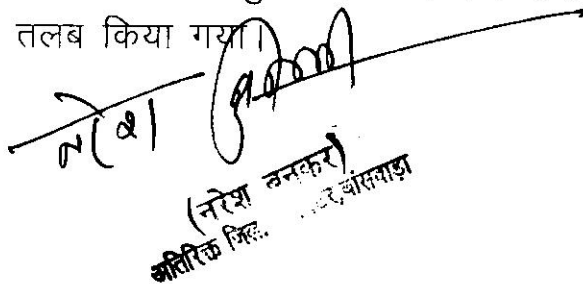 तलब किया गया।
नरेश
(नरेश बनकर)
अतिरिक्त बांसवाड़ा